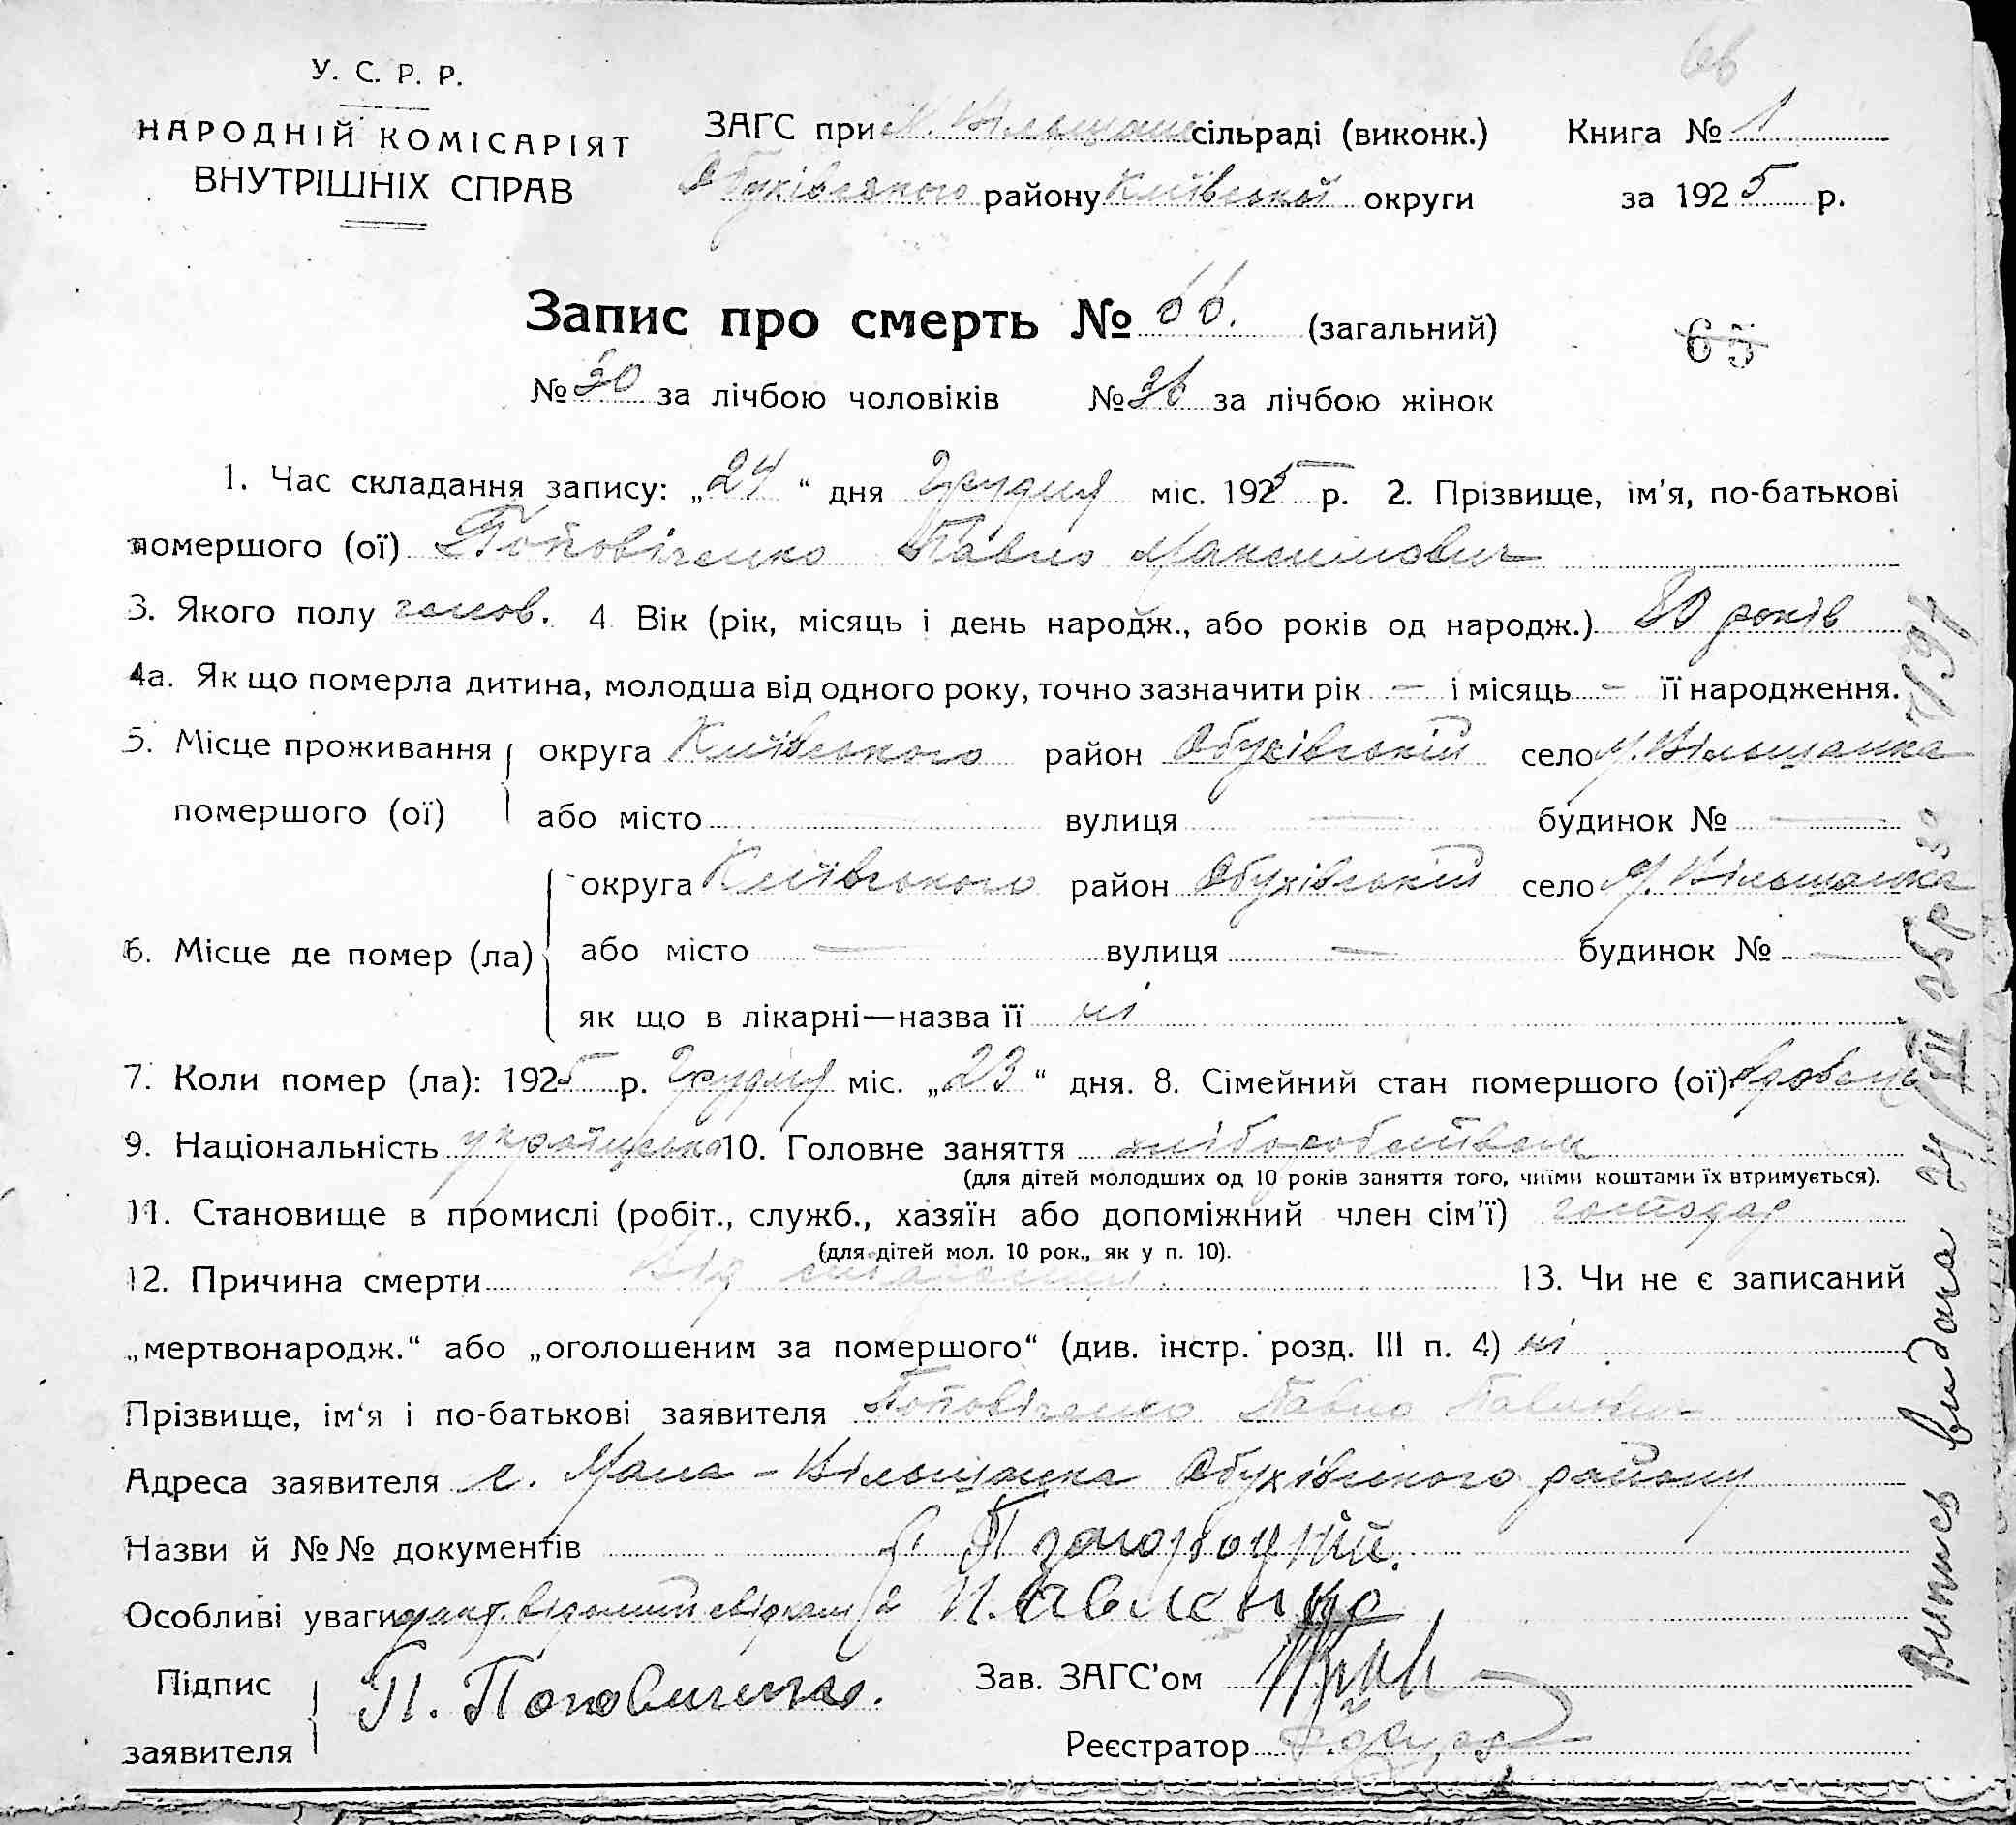 66
У. С. Р. Р.
НАРОДНІЙ КОМІСАРІЯТ
ВНУТРІШНІХ СПРАВ
ЗАГС при М. Вільщанс сільраді (виконк.)
Обуківського району Київської округи
Книга № 1
за 1925 р.
Запис про смерть № 66. (загальний)
65
№ 30 за лічбою чоловіків № 36 за лічбою жінок
1. Час складання запису: „24“ дня Грудня міс. 1925 р. 2. Прізвище, ім'я, по-батькові
помершого (ої) Поповіченко Павло Максимович
3. Якого полу чолов. 4 Вік (рік, місяць і день народж., або років од народж.) 80 років
4а. Як що померла дитина, молодша від одного року, точно зазначити рік — і місяць - її народження.
5. Місце проживання округа Київського район Обуківський село М. Вільщанка
помершого (ої) або місто — вулиця — будинок № —
округа Київського район Обуківський село М. Вільщанка
6. Місце де помер (ла) або місто — вулиця — будинок № —
як що в лікарні—назва її ні
7. Коли помер (ла): 1925 р. Грудня міс. „23“ дня. 8. Сімейний стан помершого (ої) вдовець
9. Національність українська 10. Головне заняття хліборобством
(для дітей молодших од 10 років заняття того, чиїми коштами їх втримується).
11. Становище в промислі (робіт., служб., хазяїн або допоміжний член сім'ї) господар
(для дітей мол. 10 рок., як у п. 10).
12. Причина смерти Від старости. 13. Чи не є записаний
„мертвонародж.“ або „оголошеним за помершого“ (див. інстр. розд. III п. 4) ні
Прізвище, ім'я і по-батькові заявителя Поповіченко Павло Павлович
Адреса заявителя с. Мала-Вільщанка Обухівского району
Назви й №№ документів П Загороцкий.
Особливі уваги П. Павленко
Підпис
заявителя П. Поповиченко.
Зав. ЗАГС'ом
Реєстратор
Випись видана 24/XII 25р за 7/394